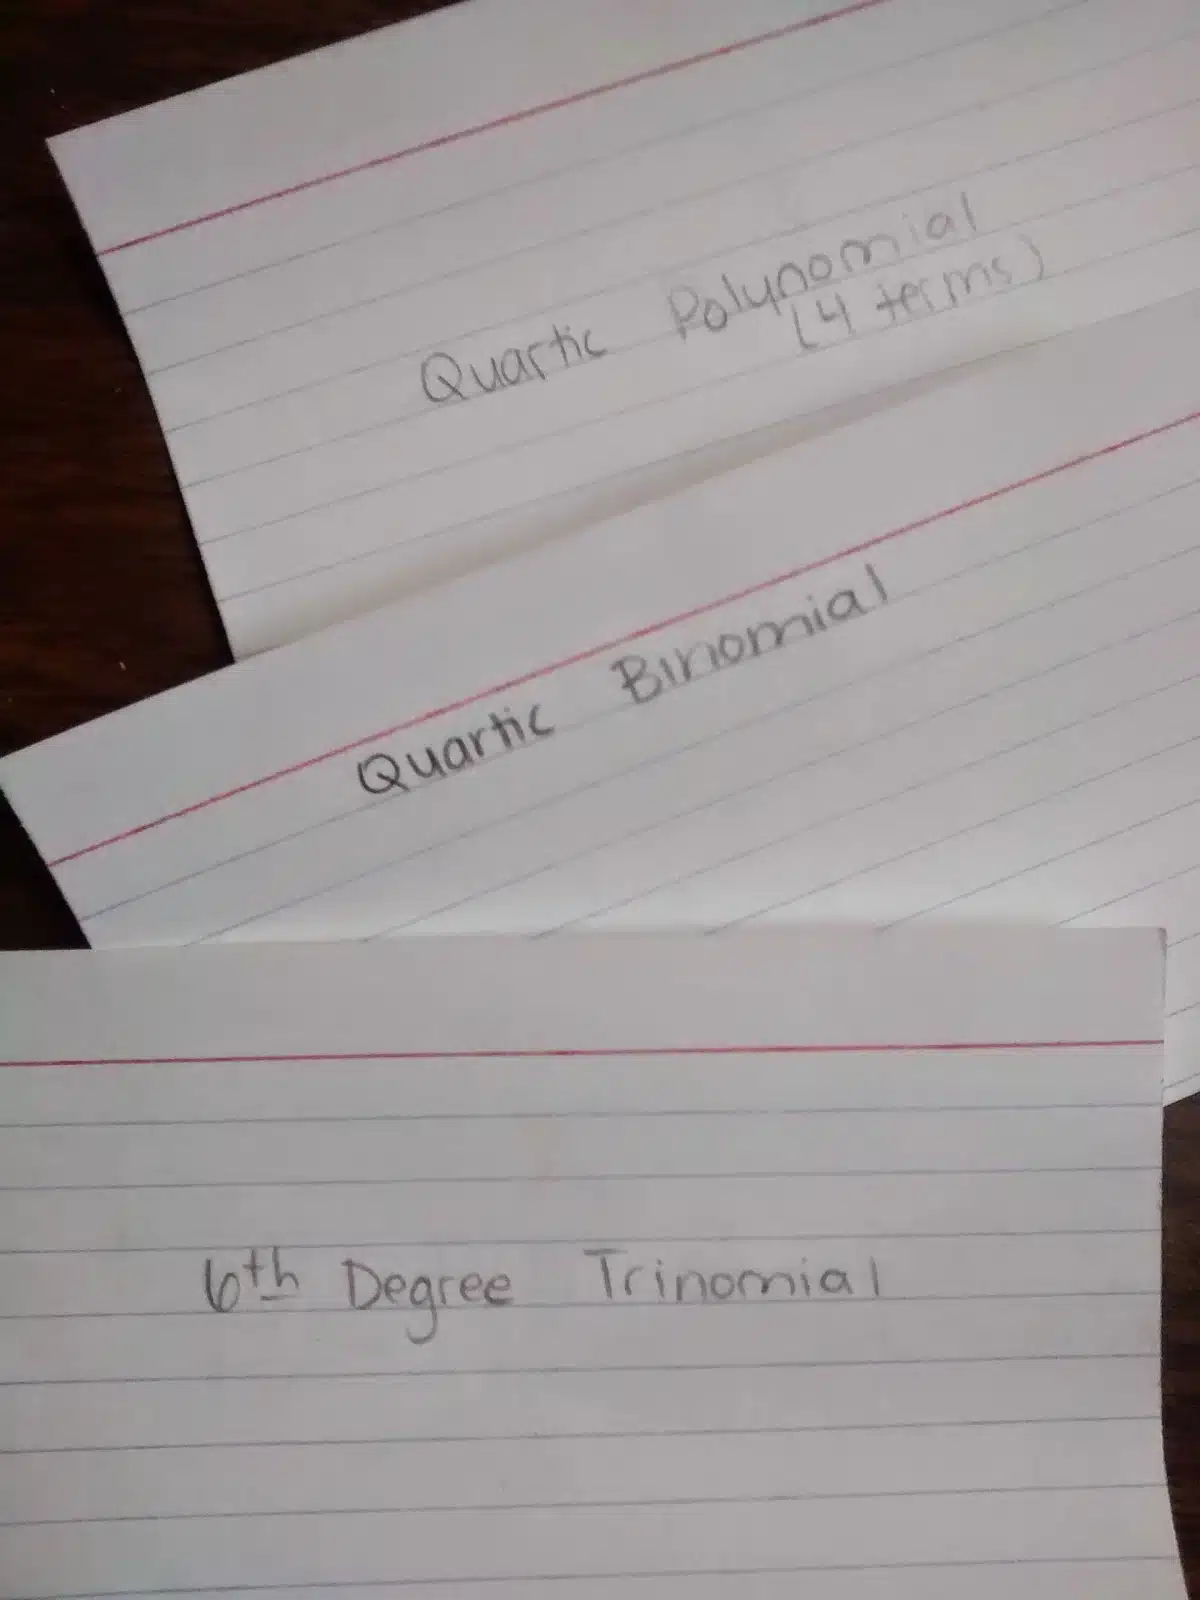 Quartic Polynomial
(4 terms)
Quartic Binomial
6th Degree Trinomial